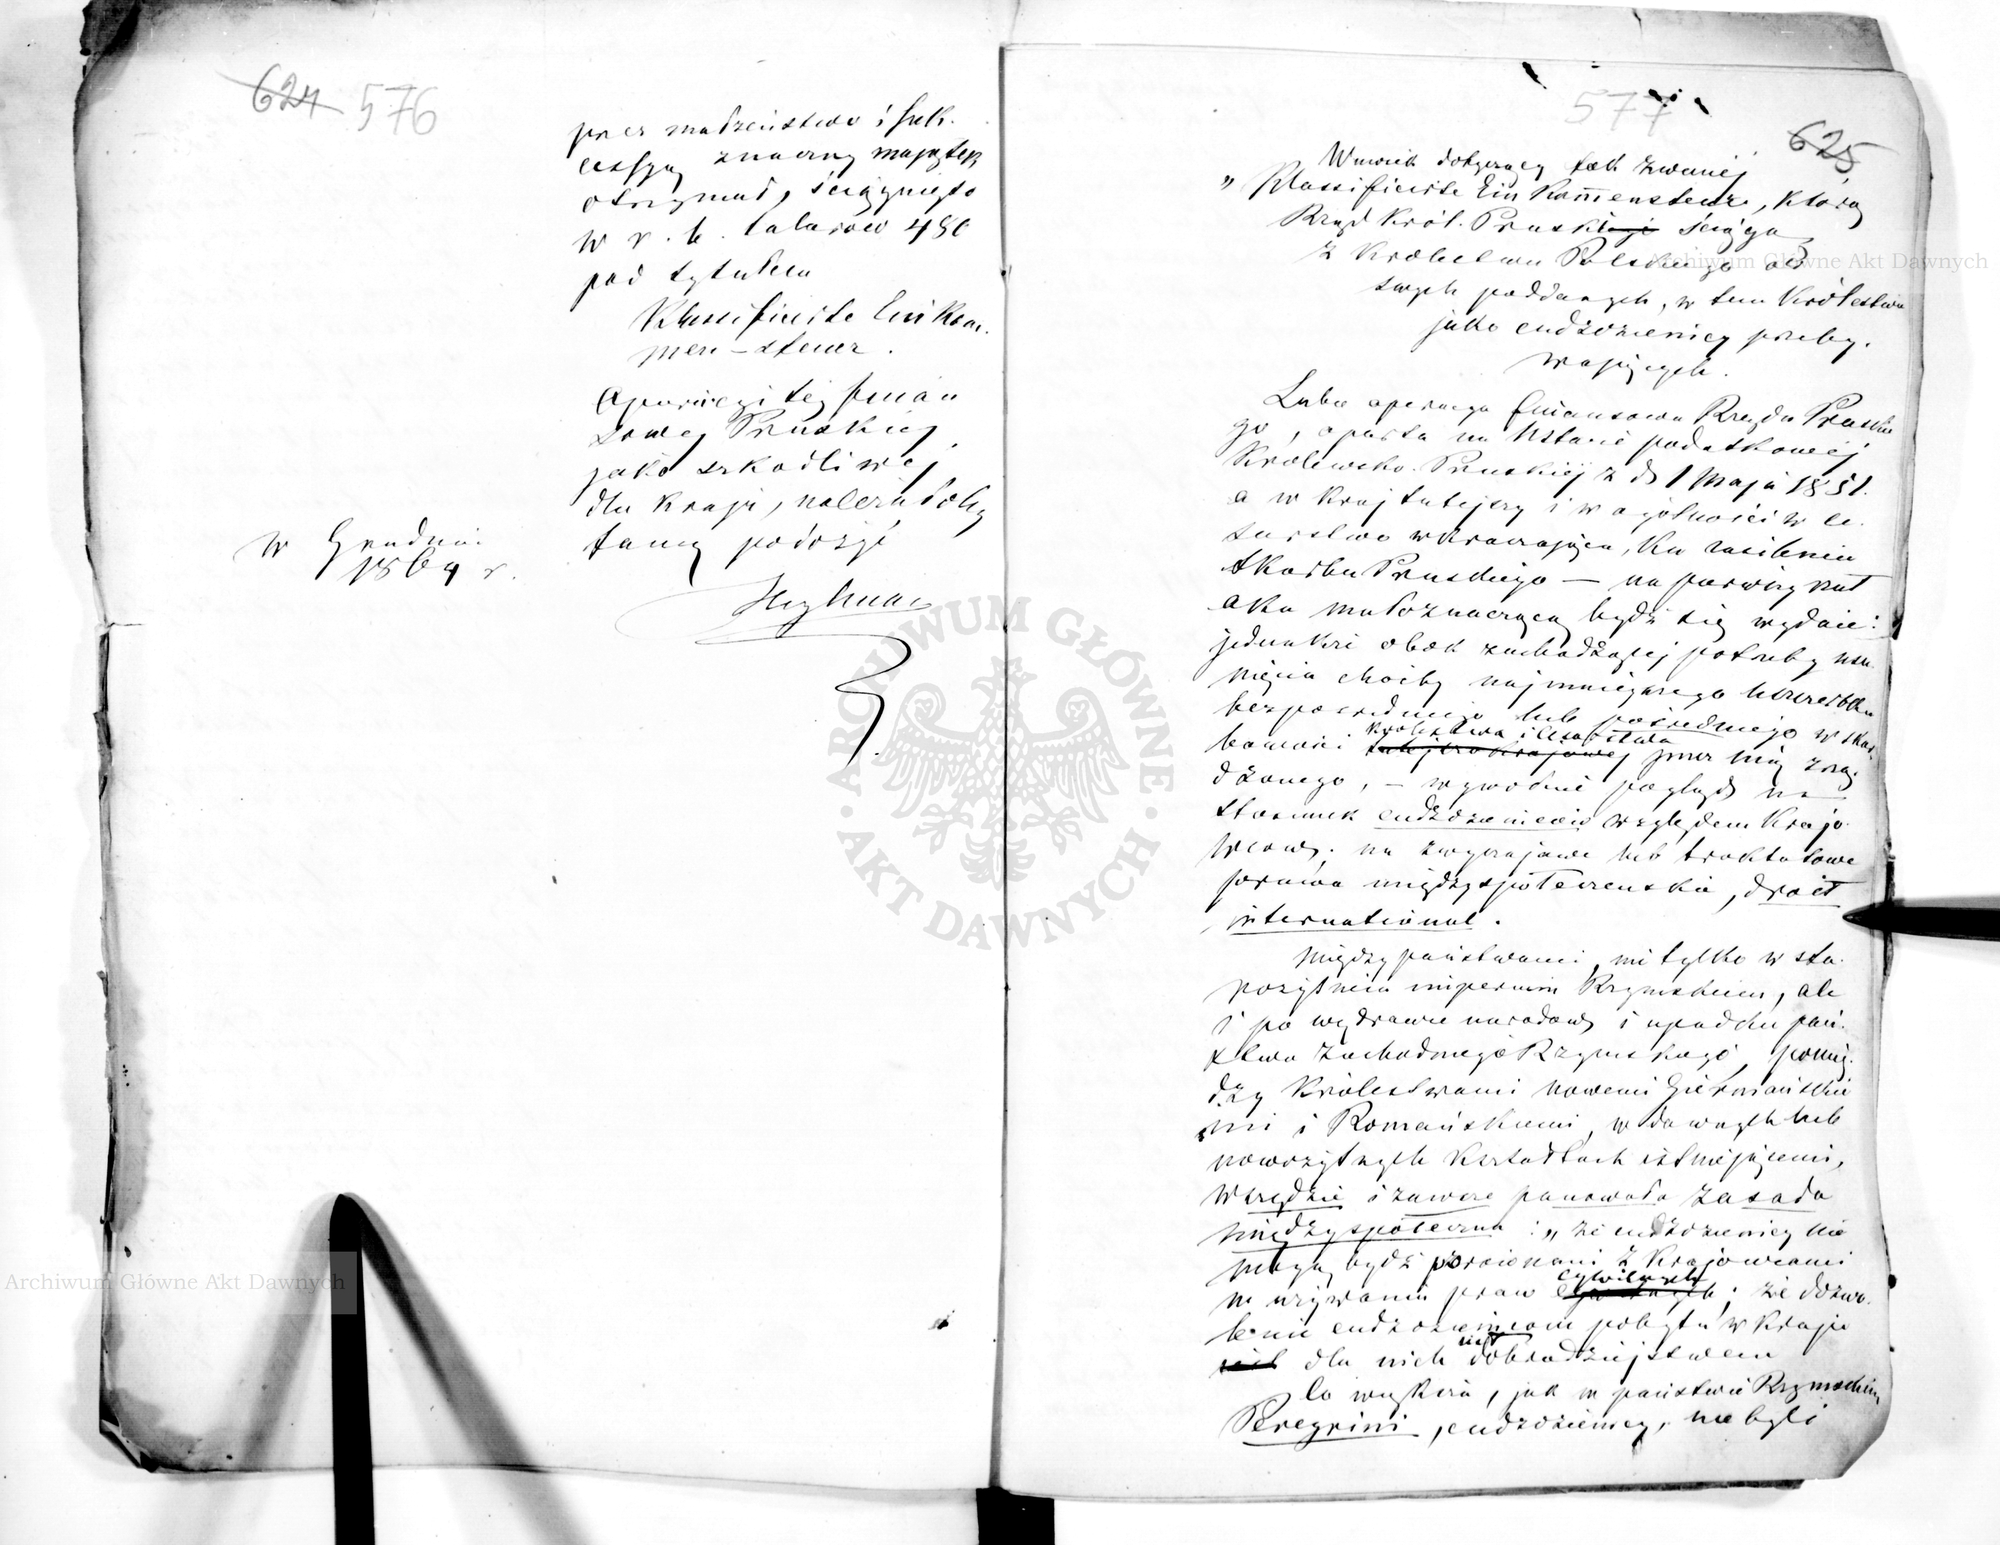 624 576
przez małżeństwo i suk-
cessyą znaczny majątek
otrzymał, ściągnięto
w r. b. talarów 480
pod tytułem
Klassificirte Einkom-
men-steuer.
Operacyi tej finan
sowej Pruskiej
jako szkodliwej
dla kraju, należałoby
tamę położyć
w Grudniu
1864 r.
577
625
Wniosek dotyczący tak zwanej
„Klassificirte Ein Kommensteuer, którą
Rząd Król. Pruski ściąga
z Królestwa Polskiego od
swych poddanych, w tem Królestwie
jako cudzoziemcy przeby-
wających.
Lubo operacya finansowa Rządu Pruskie
go, oparta na Ustawie podatkowej
Królewsko Pruskiej z d. 1 Maja 1851.
a w kraj tutejszy i w ogólności w Ce-
sarstwo wkraczająca, ku zasileniu
skarbu Pruskiego — na pierwszy rzut
oka małoznaczącą bydź się wydaie:
jednakże obok zachodzącej potrzeby usu-
nięcia choćby najmniejszego uszczerbku
bezpośredniego lub pośredniego w skar-
bowości Królestwa i Cesarstwa przez nią zrzą-
dzonego, — wywodzi pogląd na
stosunek cudzoziemców względem krajo-
wców; na zwyczajowe lub traktatowe
prawa międzyspółeczeńskie, droit
international.
Między państwami, nie tylko w sta-
rożytnem imperium Rzymskiem, ale
i po wędrowce narodów i upadku pań-
stwa Zachodniego Rzymskiego, pomię-
dzy Królestwami nowemi Giermańskie
mi i Romańskiemi, w dawnych lub
nowożytnych kształtach istniejącemi,
wszędzie i zawsze panowała zasada
międzyspółeczna: „że cudzoziemcy nie
mogą bydź porównani z krajowcami
w używaniu praw cywilnych; że dozwo-
lenie cudzoziemcom pobytu w kraju
jest dla nich dobrodziejstwem
Co większa, jak w państwie Rzymskiem
Peregrini, cudzoziemcy, nie byli
ARCHIWUM GŁÓWNE
AKT DAWNYCH
Archiwum Główne Akt Dawnych
Archiwum Główne Akt Dawnych